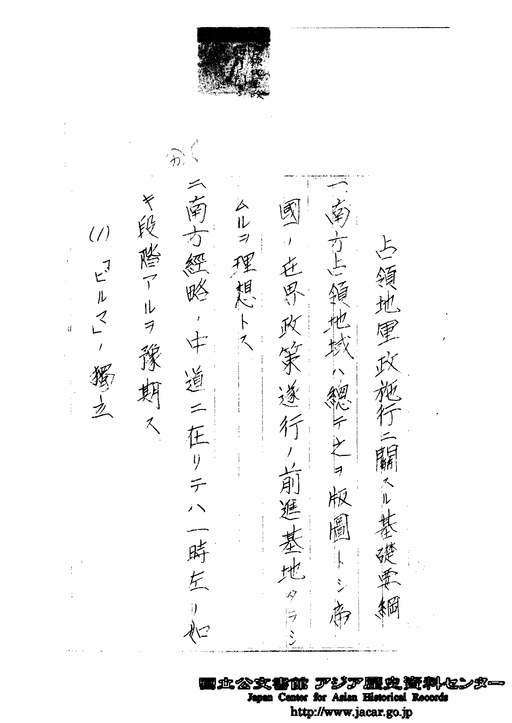 占領地軍政施行ニ關スル基礎要綱
一、南方占領地域ハ總テ之ヲ版圖トシ帝
國ノ世界政策遂行ノ前進基地タラシ
ムルヲ理想トス
二、南方經略ノ中道ニ在リテハ一時左ノ如
キ段階アルヲ豫期ス
(1)「ビルマ」ノ獨立
國立公文書館 アジア歴史資料センター
Japan Center for Asian Historical Records
http://www.jacar.go.jp